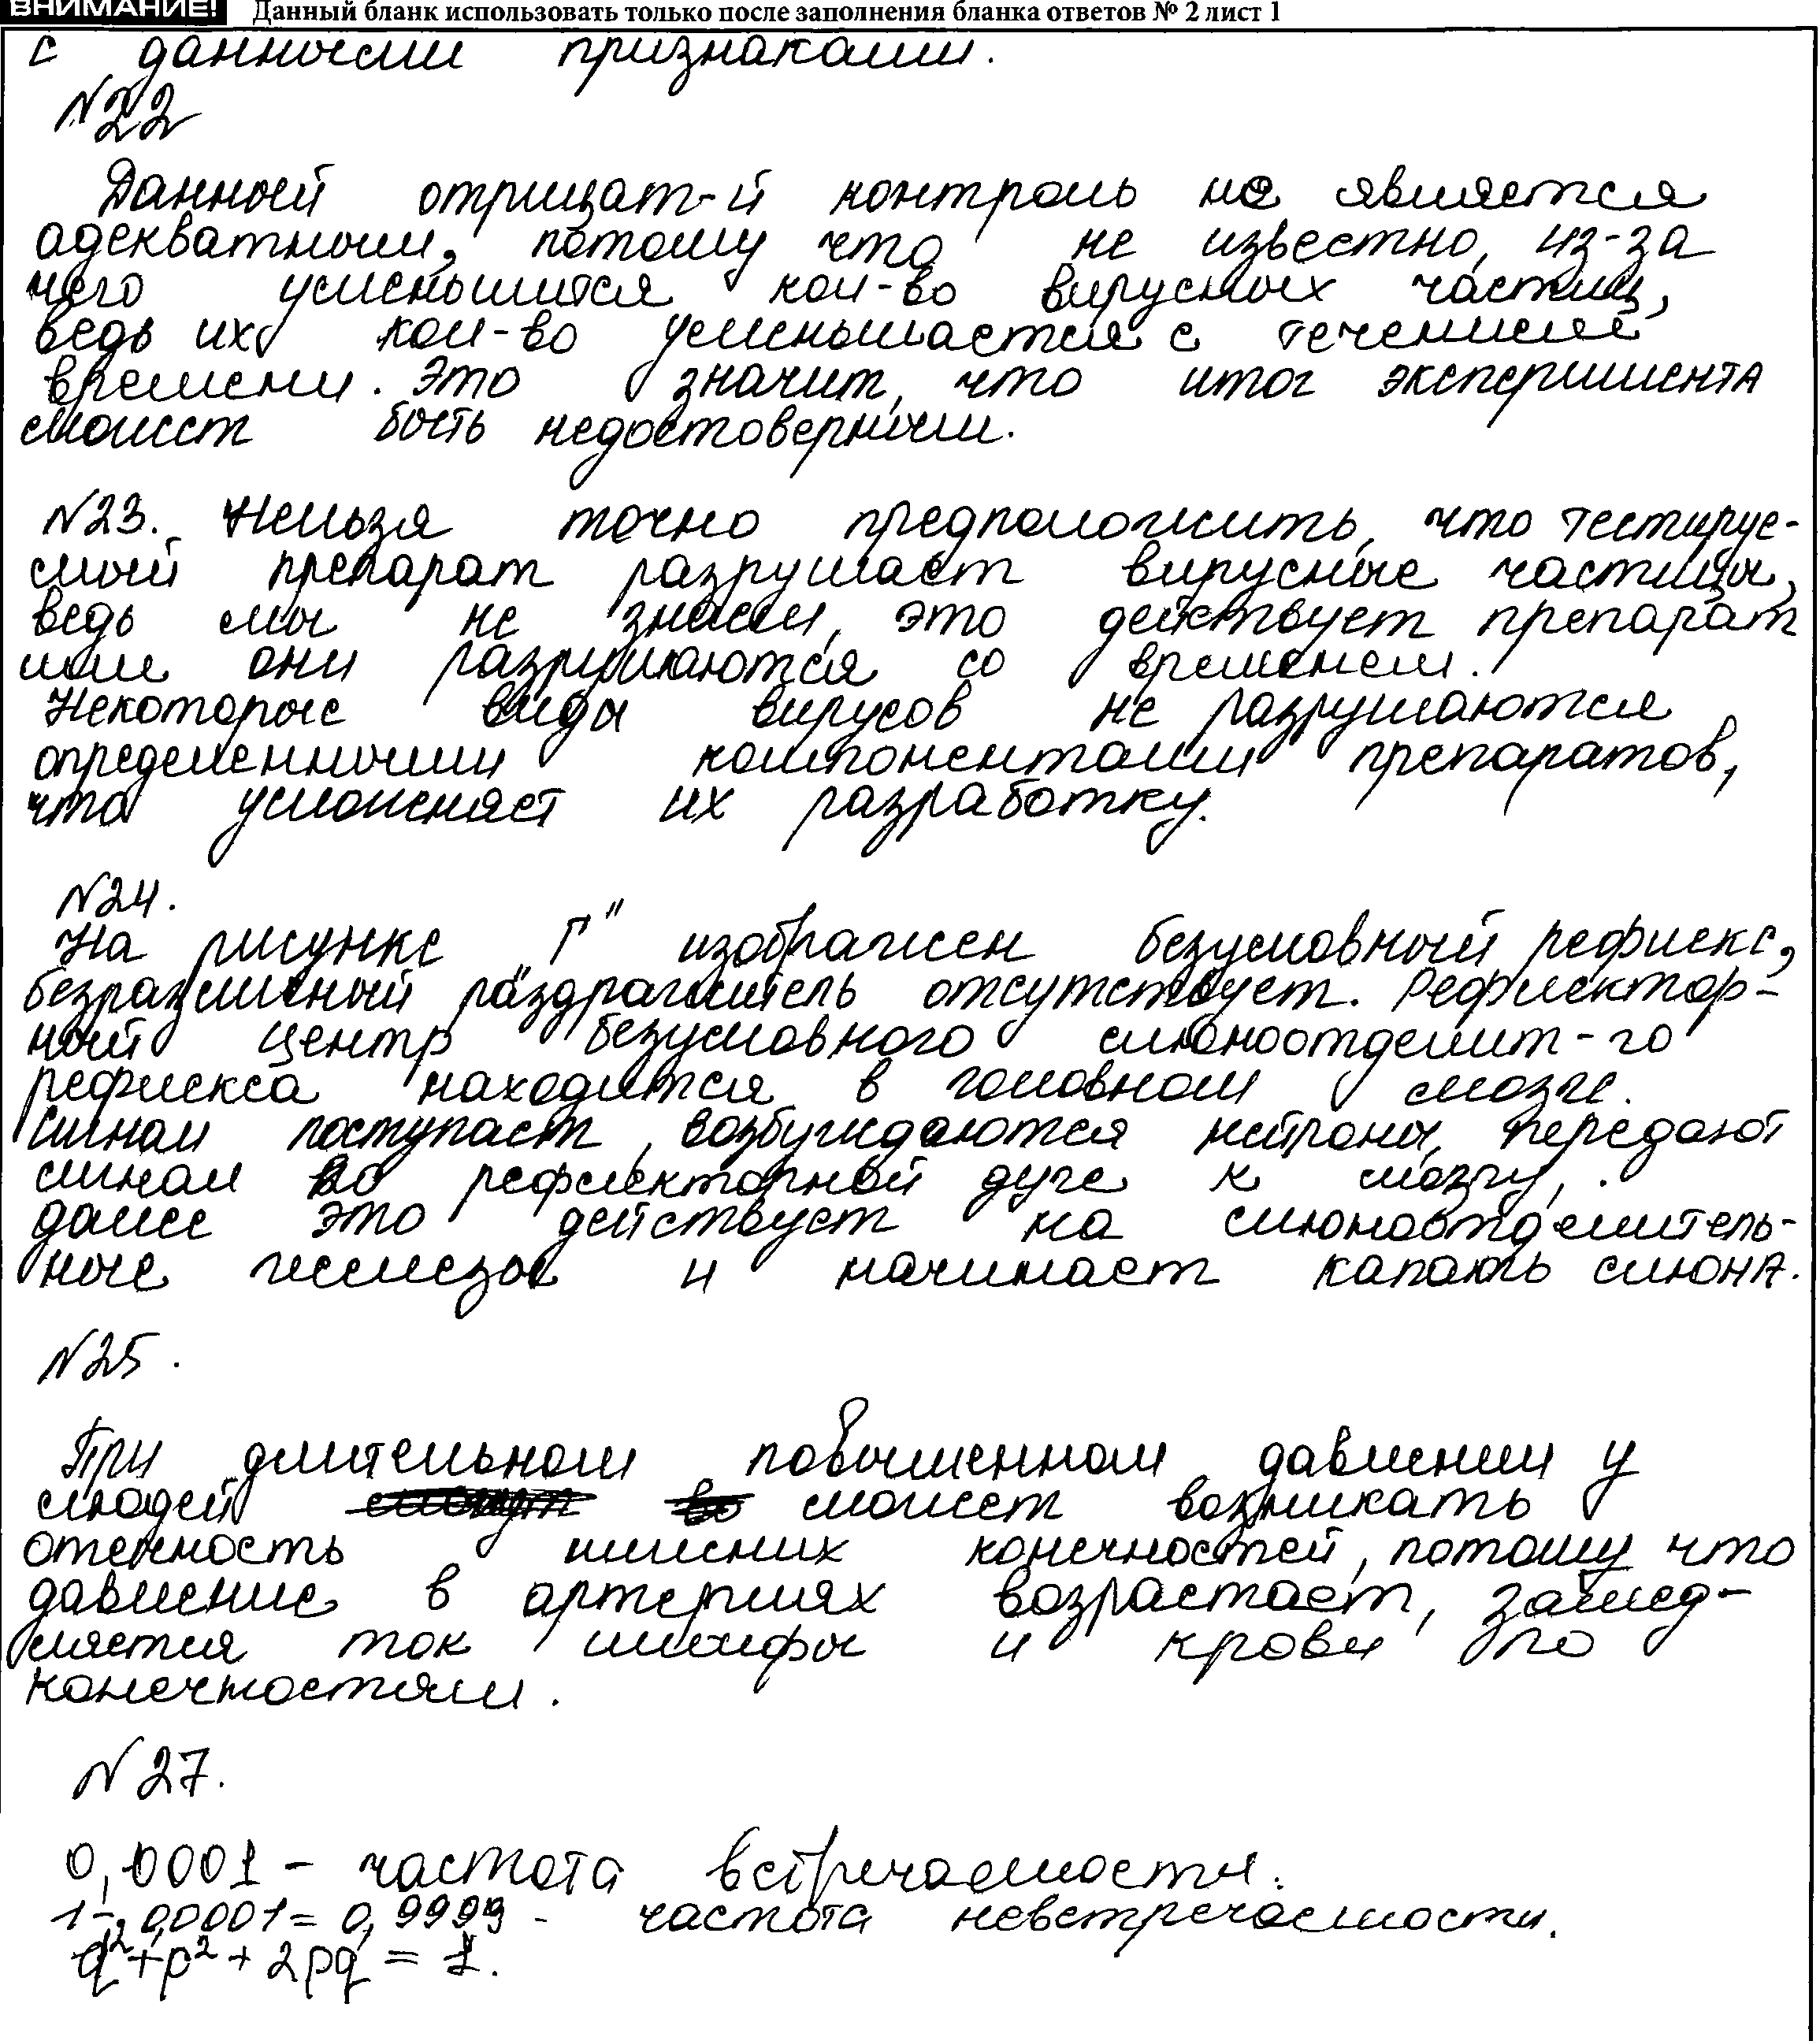 ВНИМАНИЕ! Данный бланк использовать только после заполнения бланка ответов № 2 лист 1
с данными признаками.
№22
Данный отрицат-й контроль не является
адекватным, потому что не известно, из-за
чего уменьшится кол-во вирусных частиц,
ведь их кол-во уменьшается с течением
времени. Это значит, что итог эксперимента
может быть недостоверным.
№23. Нельзя точно предположить, что тестируе-
мый препарат разрушает вирусные частицы,
ведь мы не знаем, это действует препарат
или они разрушаются со временем.
Некоторые виды вирусов не разрушаются
определенными компонентами препаратов,
что усложняет их разработку.
№24.
На рисунке „Г" изображен безусловный рефлекс,
безразличный раздражитель отсутствует. Рефлектор-
ный центр безусловного слюноотделит-го
рефлекса находится в головном мозге.
Сигнал поступает, возбуждаются нейроны, передают
сигнал по рефлекторной дуге к мозгу,
далее это действует на слюноотделитель-
ные железы и начинает капать слюна.
№25.
При длительном повышенном давлении у
людей может возникать
отечность нижних конечностей, потому что
давление в артериях возрастает, замед-
ляется ток лимфы и крови по
конечностям.
№27.
0,0001 - частота встречаемости.
1-0,0001=0,9999 - частота невстречаемости.
q²+p²+2pq = 1.